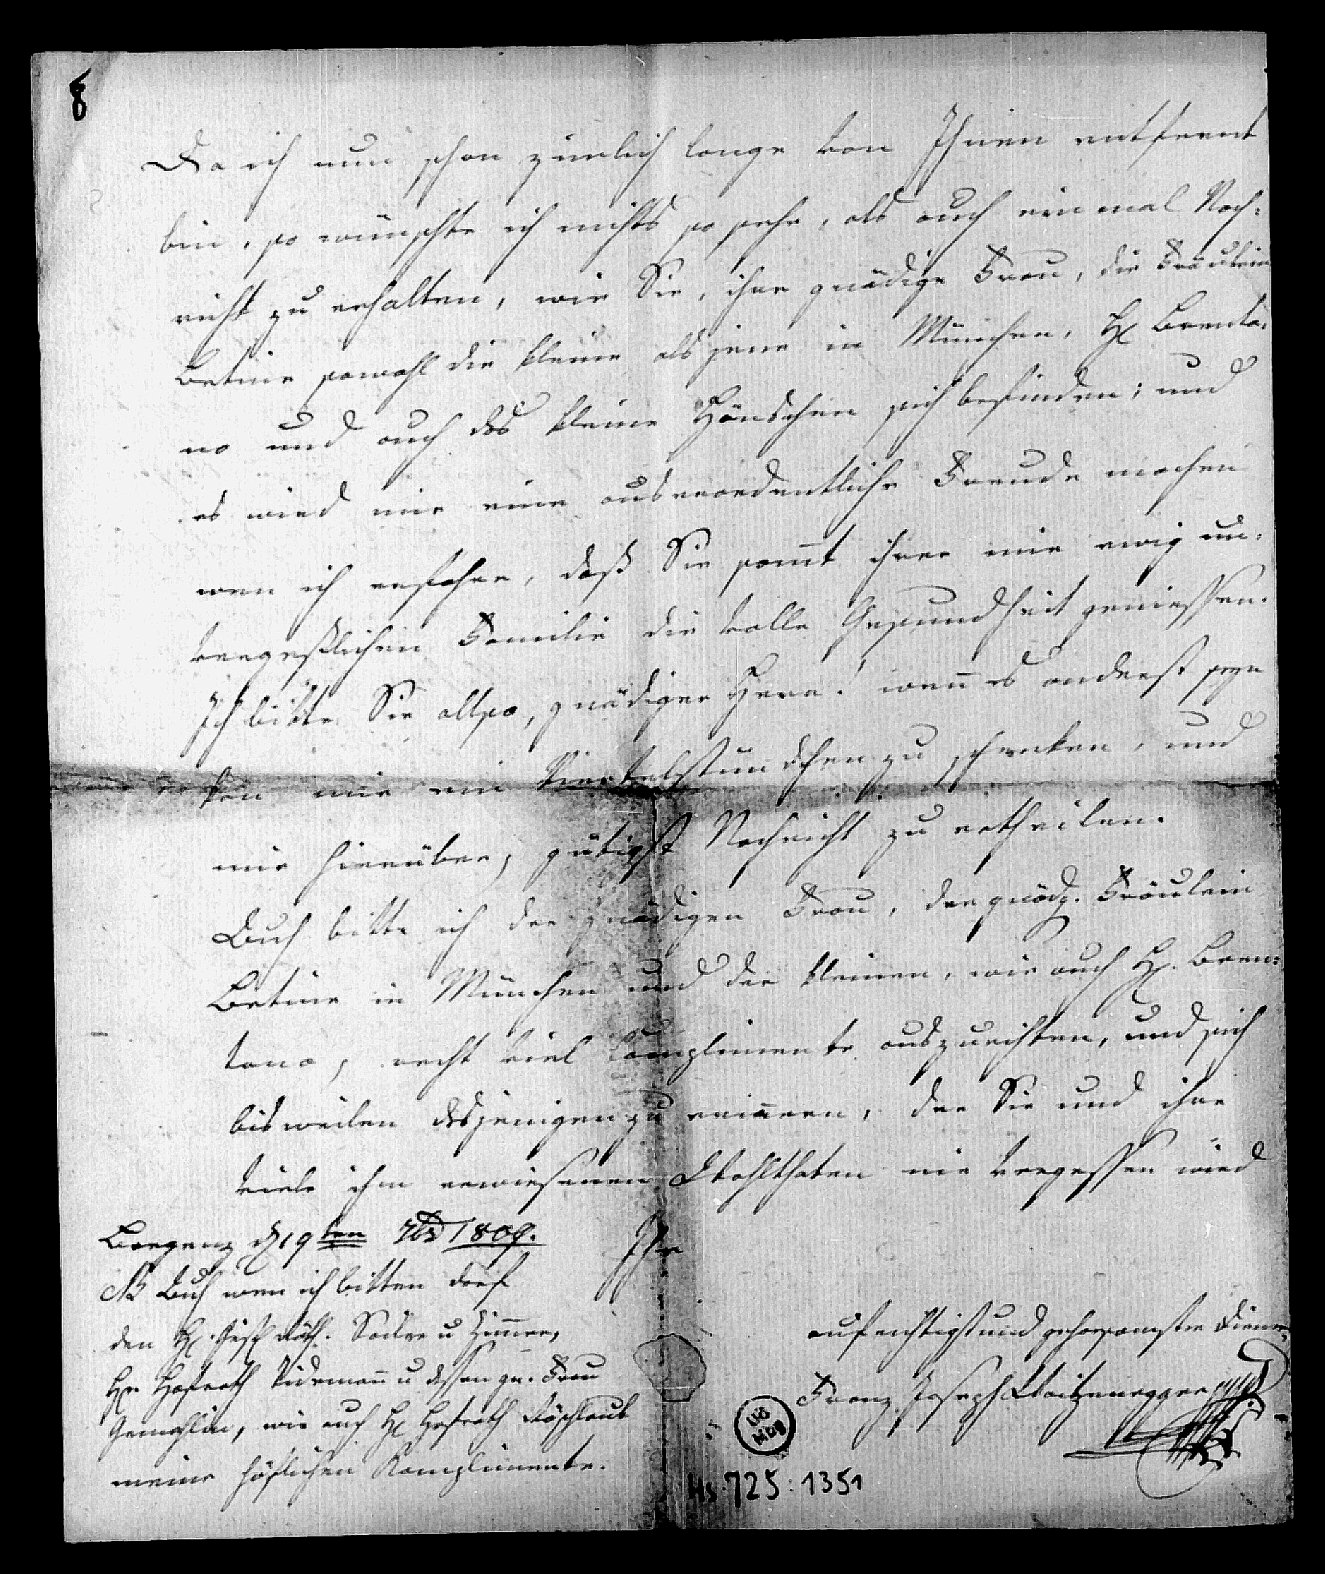 8
Da ich nun schon zimlich lange von Ihnen entfernt
bin, so wünschte ich nichts so sehr, als auch einmal Nach=
richt zu erhalten, wie Sie, ihre gnädige Frau, die Fräulein
Betine sowohl die kleine als jene in München, H. Brenta=
no und auch das kleine Hänschen sich befinden; und
es wird mir eine ausserordentliche Freude machen
wen ich erfahre, daß Sie sammt ihrer mir ewig un=
vergeßlichen Familie die volle Gesundheit geniessen.
Ich bitte Sie allso, gnädiger Herr! wenn es anderst seyn
kan mir ein Viertelstündchen zu schenken, und
mir hierüber, gütigst Nachricht zu ertheilen.
Auch bitte ich der gnädigen Frau, der gnädg. Fräulein
Betine in München und der kleinen, wie auch H. Bren=
tano, recht viel Complimente auszurichten, und sich
bisweilen desjenigen zu erinnern, der Sie und ihre
viele ihm erwiesenen Wohlthaten nie vergessen wird
Bregenz d 19ten 7br 1809.
Ihr
NB Auch wen ich bitten darf
den H. Räth. Sailer u Zimmer,
Hr Hofrath Tidemann u dessen gn. Frau
Gemahlin, wie auch H. Hofrath Röschlaub
meine höflichen Komplimente.
aufrichtigst und gehorsamster Diener
Franz Joseph Waitzenegger
UB
Mbg
Hs. 725:1351